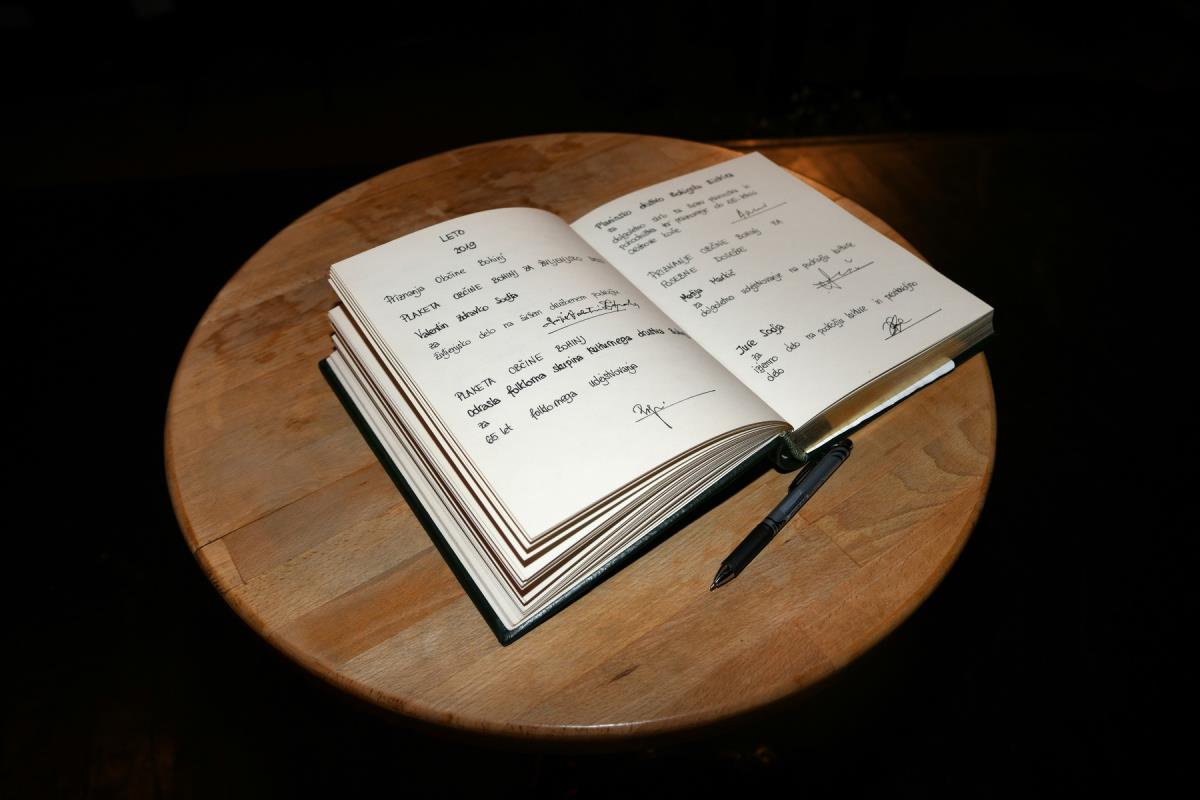 LETO
2019
Priznanja Občine Bohinj
PLAKETA OBČINE BOHINJ ZA ŽIVLJENJSKO
Valentin Zdravko Sodja
za
življenjsko delo na širšem družbenem področju
PLAKETA OBČINE BOHINJ
Odrasla folklorna skupina kulturnega društva
za
65 let folklornega udejstvovanja
Planinsko društvo Bohinjska Bistrica
za
dolgoletno skrb za širšo planinsko in
pohodniško
Orožnove koče
PRIZNANJE OBČINE BOHINJ ZA
POSEBNE DOSEŽKE
Marija Markič
za
dolgoletno udejstvovanje na področju kulture
Jure Sodja
za
izjemno delo na področju kulture in
delo